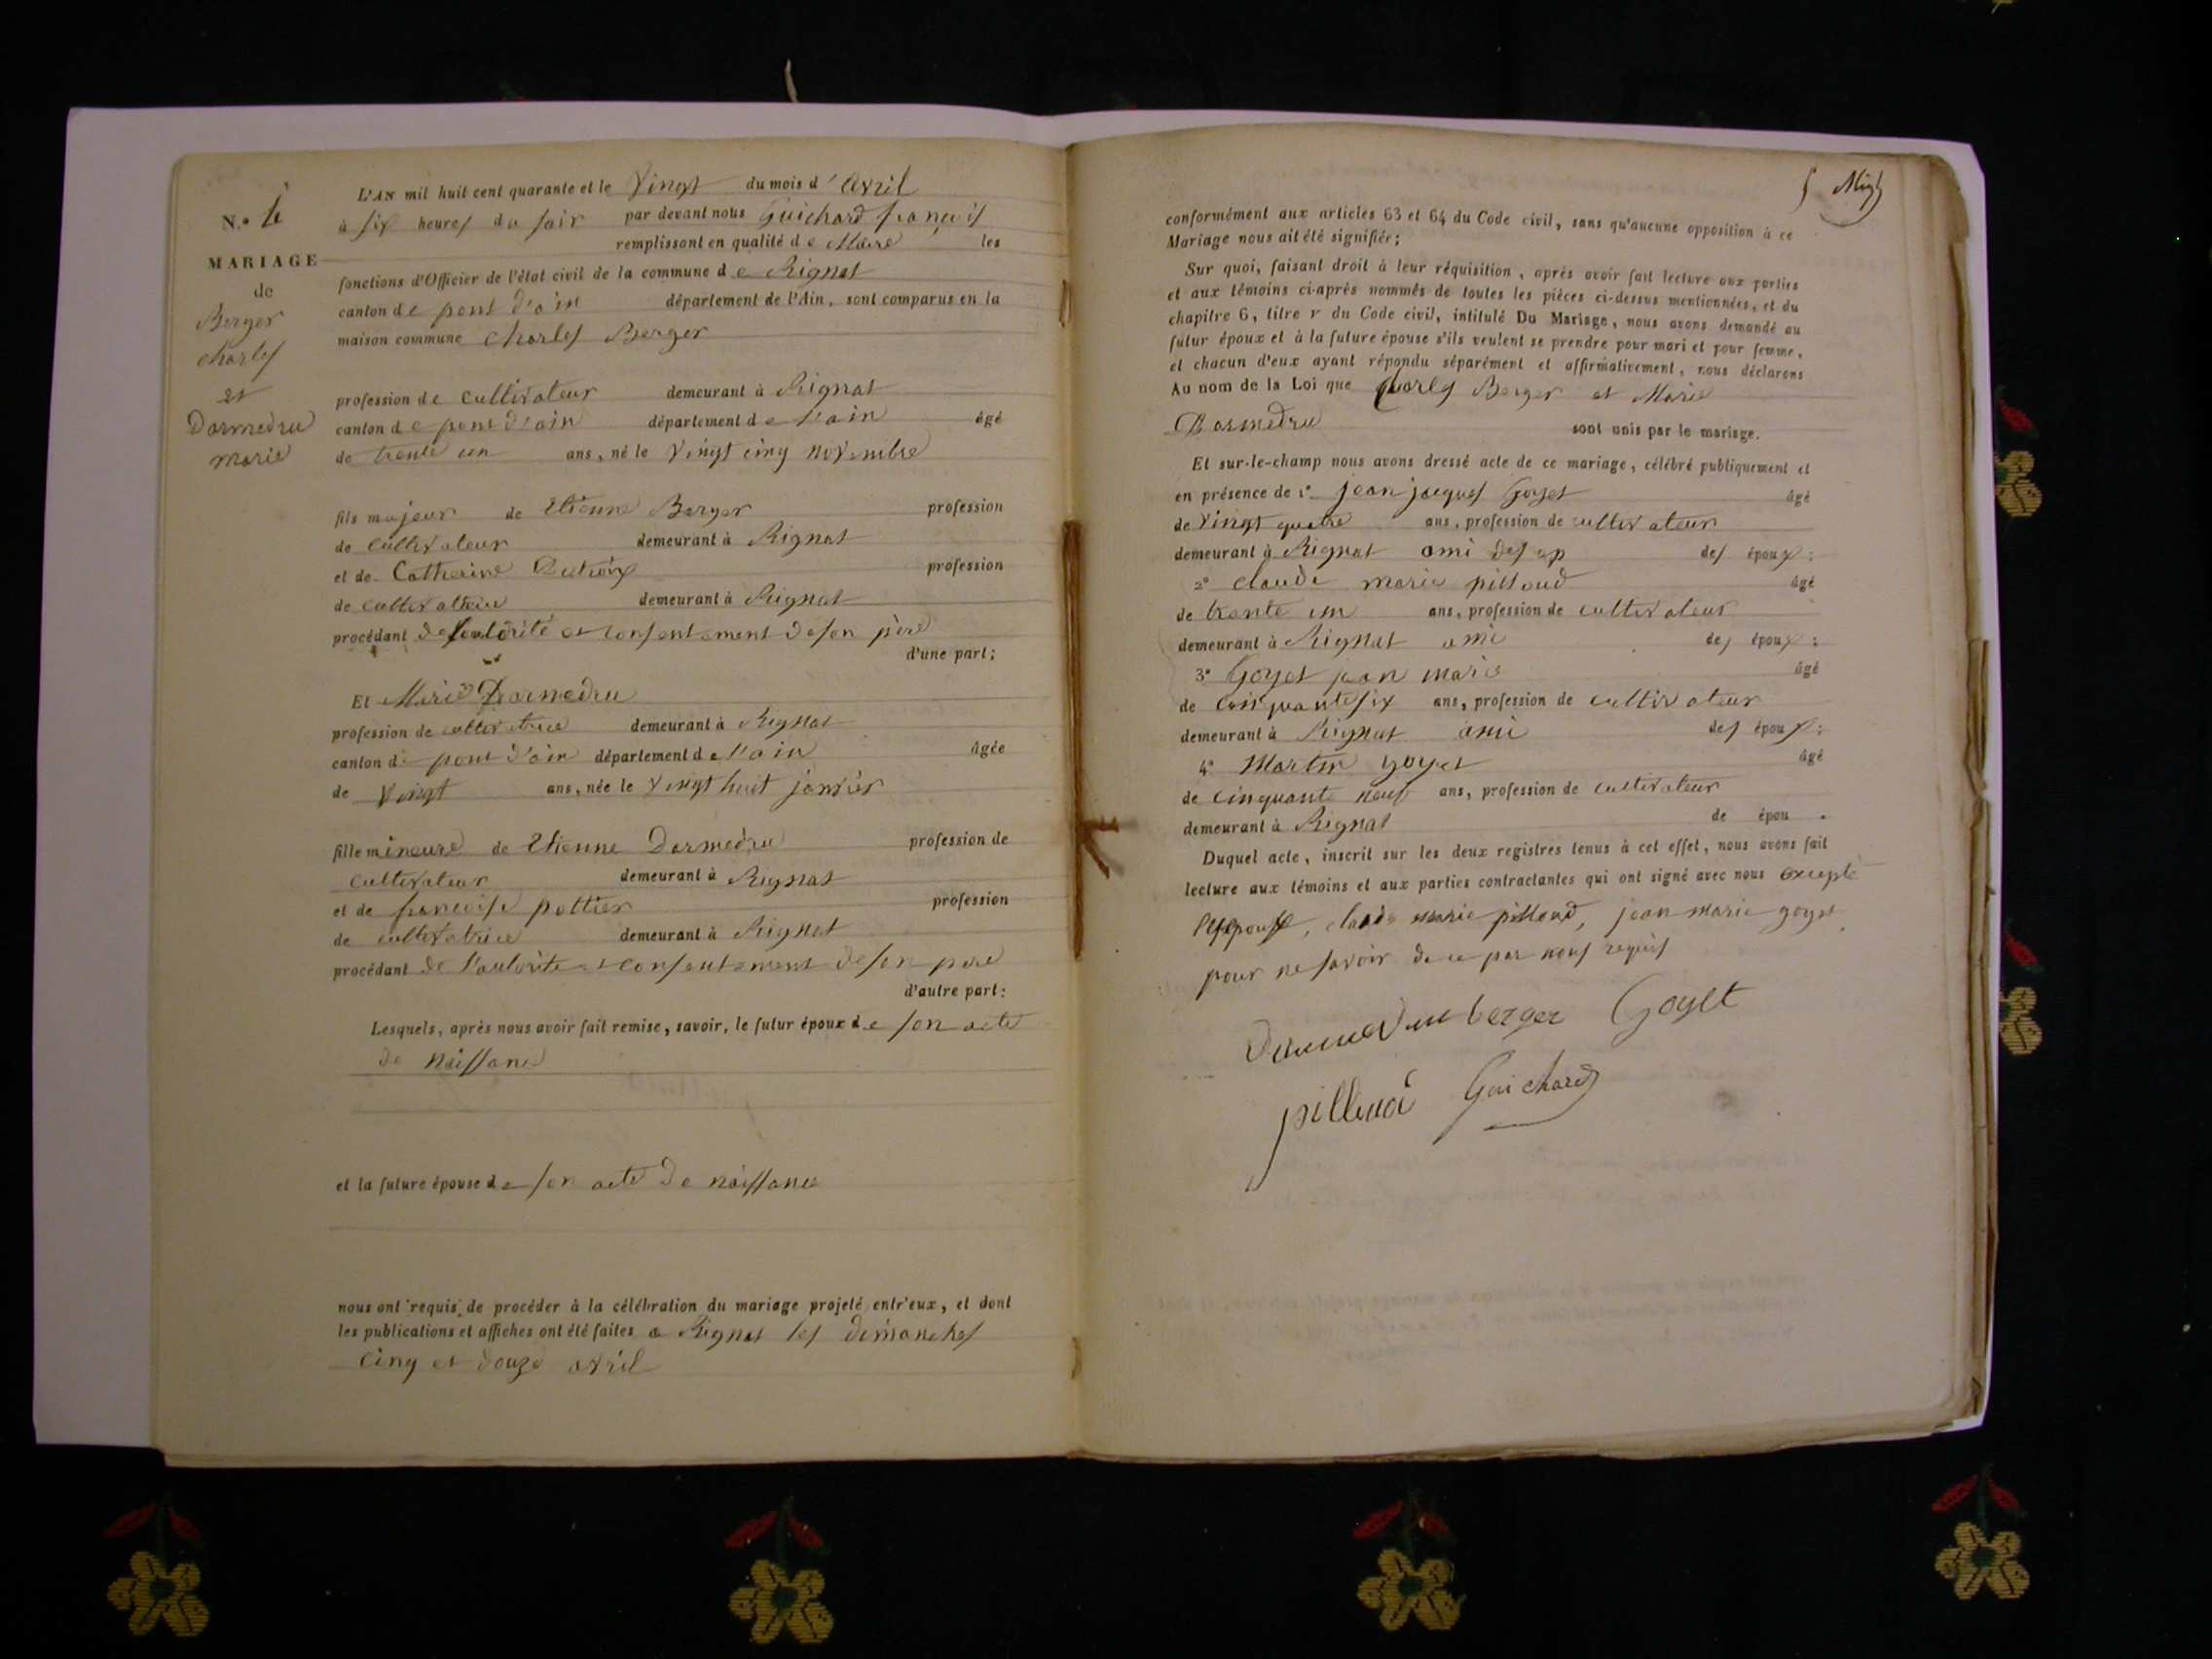 L'AN mil huit cent quarante et le Vingt du mois d'avril
N.º 4
à six heures du soir par devant nous Guichard françois
remplissant en qualité de Maire les
MARIAGE
fonctions d'Officier de l'état civil de la commune de Rignat
de
canton de pont d'ain département de l'Ain, sont comparus en la
Berger
maison commune charles Berger
charles
et
profession de cultivateur demeurant à Rignat
Darmedru
canton de pont d'ain département de l'ain âgé
marie
de trente un ans, né le Vingt cinq novembre
fils majeur de Etienne Berger profession
de cultivateur demeurant à Rignat
et de Catherine profession
de cultivatrice demeurant à Rignat
procédant de l'autorité et consentement de son père
d'une part;
Et Marie Darmedru
profession de cultivatrice demeurant à Rignat
canton de pont d'ain département de l'ain âgée
de Vingt ans, née le Vingt huit janvier
fille mineure de Etienne Darmedru profession de
cultivateur demeurant à Rignat
et de francoise pottier profession
de cultivatrice demeurant à Rignat
procédant de l'autorite et consentement de son pere
d'autre part:
Lesquels, après nous avoir fait remise, savoir, le futur époux de son acte
de naissance
et la future épouse de son acte de naissance
nous ont requis de procéder à la célébration du mariage projeté entr'eux, et dont
les publications et affiches ont été faites a Rignat les dimanches
cinq et douze avril
5
conformément aux articles 63 et 64 du Code civil, sans qu'aucune opposition à ce
Mariage nous ait été signifiée;
Sur quoi, faisant droit à leur réquisition, après avoir fait lecture aux parties
et aux témoins ci-après nommés de toutes les pièces ci-dessus mentionnées, et du
chapitre 6, titre v du Code civil, intitulé Du Mariage, nous avons demandé au
futur époux et à la future épouse s'ils veulent se prendre pour mari et pour femme,
et chacun d'eux ayant répondu séparément et affirmativement, nous déclarons
Au nom de la Loi que Charles Berger et Marie
Darmedru sont unis par le mariage.
Et sur-le-champ nous avons dressé acte de ce mariage, célébré publiquement et
en présence de 1º jean jacques Goyet âgé
de Vingt quatre ans, profession de cultivateur
demeurant à Rignat ami des ep des époux:
2º claude marie pilloud âgé
de trente un ans, profession de cultivateur
demeurant à Rignat ami des époux:
3º Goyet jean marie âgé
de cinquante six ans, profession de cultivateur
demeurant à Rignat ami des époux:
4º Martin goyet âgé
de cinquante neuf ans, profession de cultivateur
demeurant à Rignat de épou .
Duquel acte, inscrit sur les deux registres tenus à cet effet, nous avons fait
lecture aux témoins et aux parties contractantes qui ont signé avec nous excepté
l'epouse, claude marie pilloud, jean marie goyet
pour ne savoir de ce par nous requis
berger Goyet
Guichard